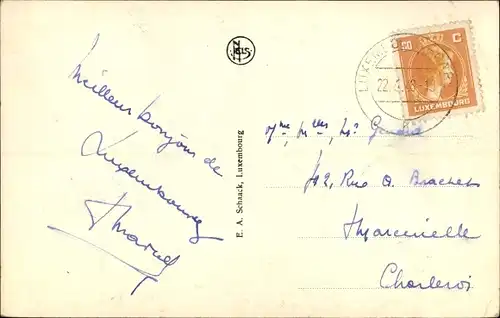 Meilleur bonjour de
Luxembourg
Marcel
E. A. Schaack, Luxembourg
NELS
LUXEMBOURG
22
50 C
LUXEMBOURG
Mme, Mlles, Mr
Rue A. Brachet
Marcinelle
Charleroi